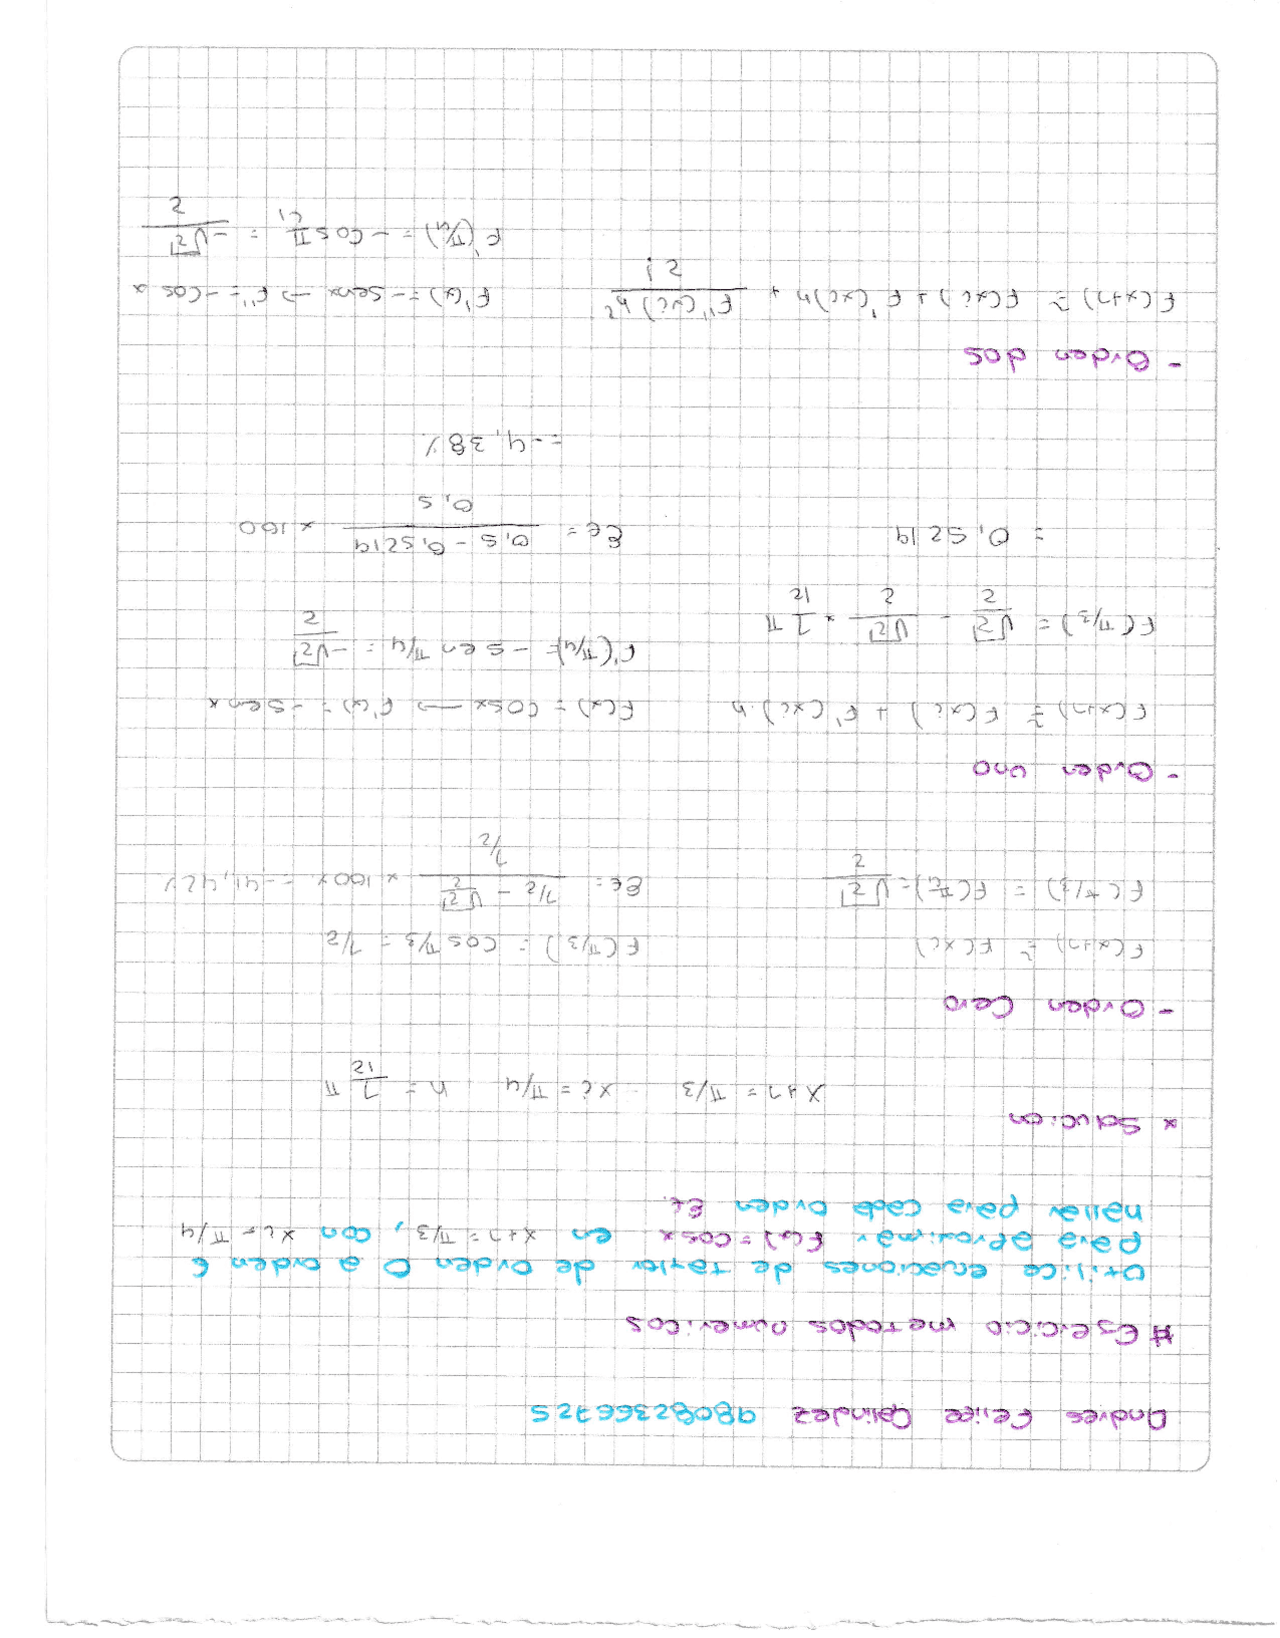 Andres Felipe Galindez 98082366725
# Ejercicio metodos numericos
Utilice ecuaciones de taylor de orden 0 a orden 6
para aproximar F(x) = cosx en x+1 = π/3, con xi = π/4
hallar para cada orden Et.
* Solucion
x+1 = π/3 xi = π/4 h = 1/12 π
- Orden Cero
F(x+1) ≅ F(xi) F(π/3) = cos π/3 = 1/2
F(π/3) = F(π/4) = √2/2 Et = (1/2 - √2/2)/(1/2) × 100% = -41,42%
- Orden uno
F(x+1) ≅ F(xi) + F'(xi) h F(x) = cosx → F'(x) = -senx
F'(π/4) = -sen π/4 = -√2/2
F(π/3) = √2/2 - √2/2 * 1/12 π
= 0,5219 Et = (0,5 - 0,5219)/0,5 × 100
= -4,38%
- Orden dos
F(x+1) ≅ F(xi) + F'(xi)h + F''(xi)h²/2! F'(x) = -senx → F'' = -cos x
F''(π/4) = -cos π/4 = -√2/2